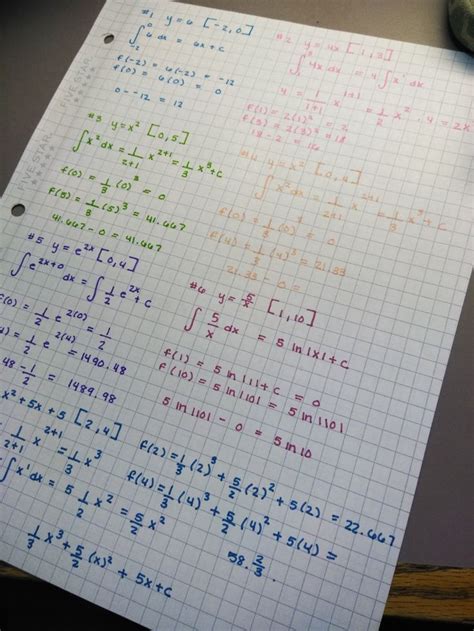 #1 y=6 [-2,0]
∫₋₂⁰ 6 dx = 6x+c
f(-2) = 6(-2) = -12
f(0) = 6(0) = 0
0 - -12 = 12
#2 y=4x [1,3]
∫₁³ 4x dx = 4∫x' dx
4 = 1/1+1 x¹⁺¹ = 1/2 x² · 4 = 2x²
f(1) = 2(1)² = 2
f(3) = 2(3)² = 18
18 - 2 = 16
#3 y=x² [0,5]
∫x² dx = 1/2+1 x²⁺¹ = 1/3 x³+c
f(0) = 1/3 (0)³ = 0
f(5) = 1/3 (5)³ = 41.667
41.667 - 0 = 41.667
#4 y=x² [0,4]
∫x² dx = 1/2+1 x²⁺¹ = 1/3 x³+c
f(0) = 1/3 (0) = 0
f(4) = 1/3 (4)³ = 21.33
21.33 - 0 =
#5 y=e²ˣ [0,4]
∫e²ˣ⁺⁰ dx = ∫ 1/2 e²ˣ +c
f(0) = 1/2 e²⁽⁰⁾ = 1/2
= 1/2 e²⁽⁴⁾ = 1490.48
.48 - 1/2 = 1489.98
#6 y=5/x [1,10]
∫ 5/x dx = 5 ln|x|+c
f(1) = 5 ln|1|+c = 0
f(10) = 5 ln|10| = 5 ln|10|
5 ln|10| - 0 = 5 ln 10
x²+5x+5 [2,4]
1/2+1 x²⁺¹ = 1/3 x³
∫x' dx = 5 1/2 x² = 5/2 x²
1/3 x³ + 5/2 (x)² + 5x+c
f(2) = 1/3 (2)³ + 5/2 (2)² + 5(2) = 22.667
f(4) = 1/3 (4)³ + 5/2 (4)² + 5(4) =
58. 2/3
FIVE STAR
FIVE STAR